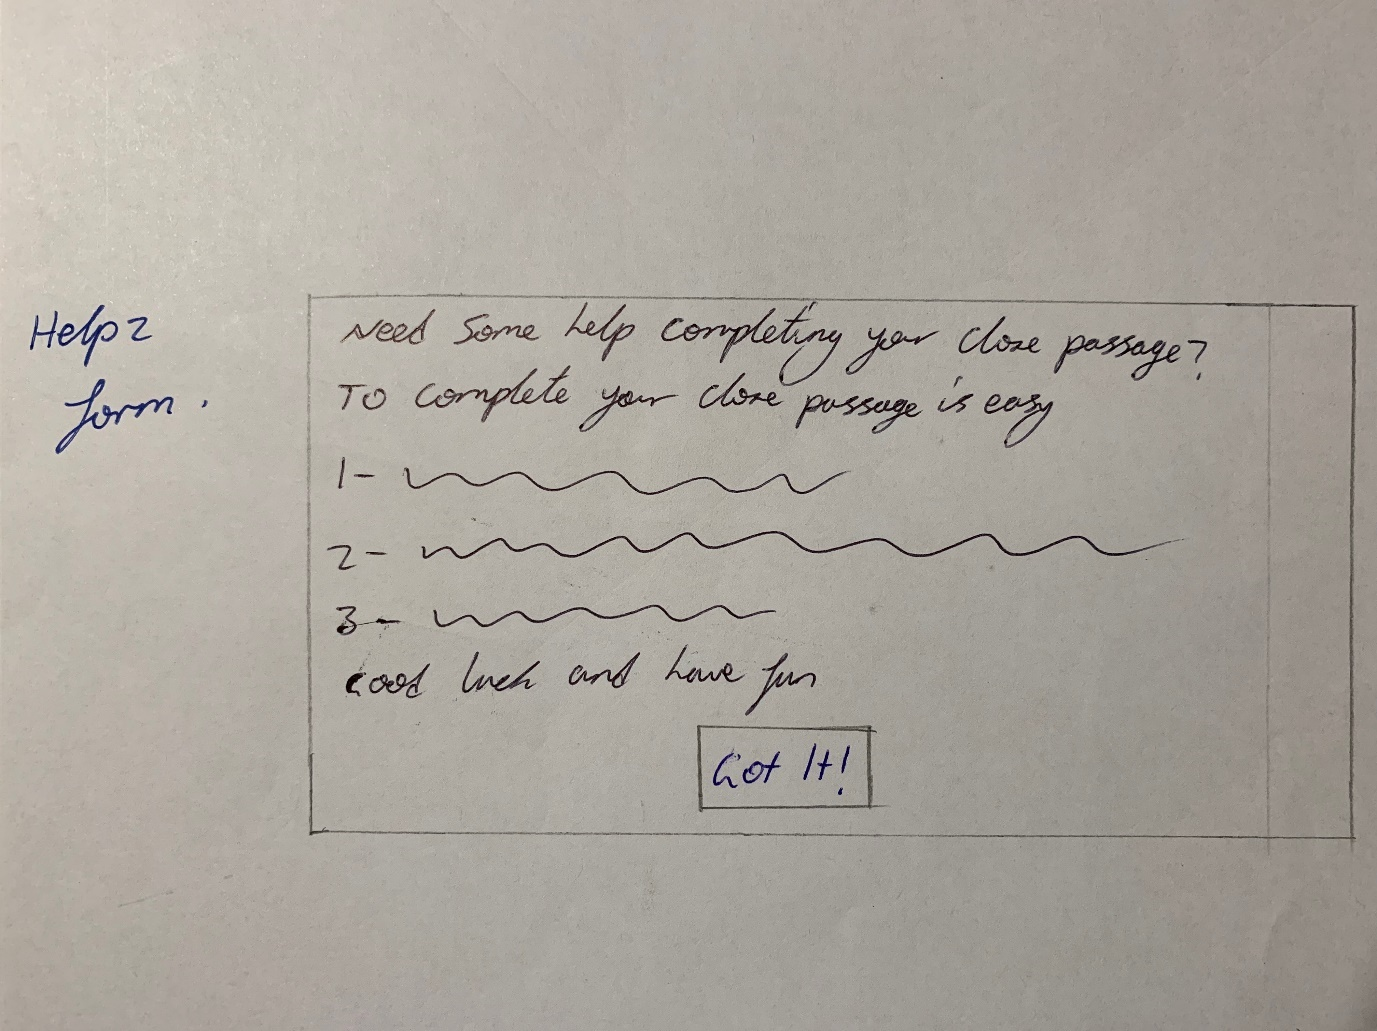 Help2
form.
Need some help completing your cloze passage?
To complete your cloze passage is easy
1-
2-
3-
Good luck and have fun
Got It!